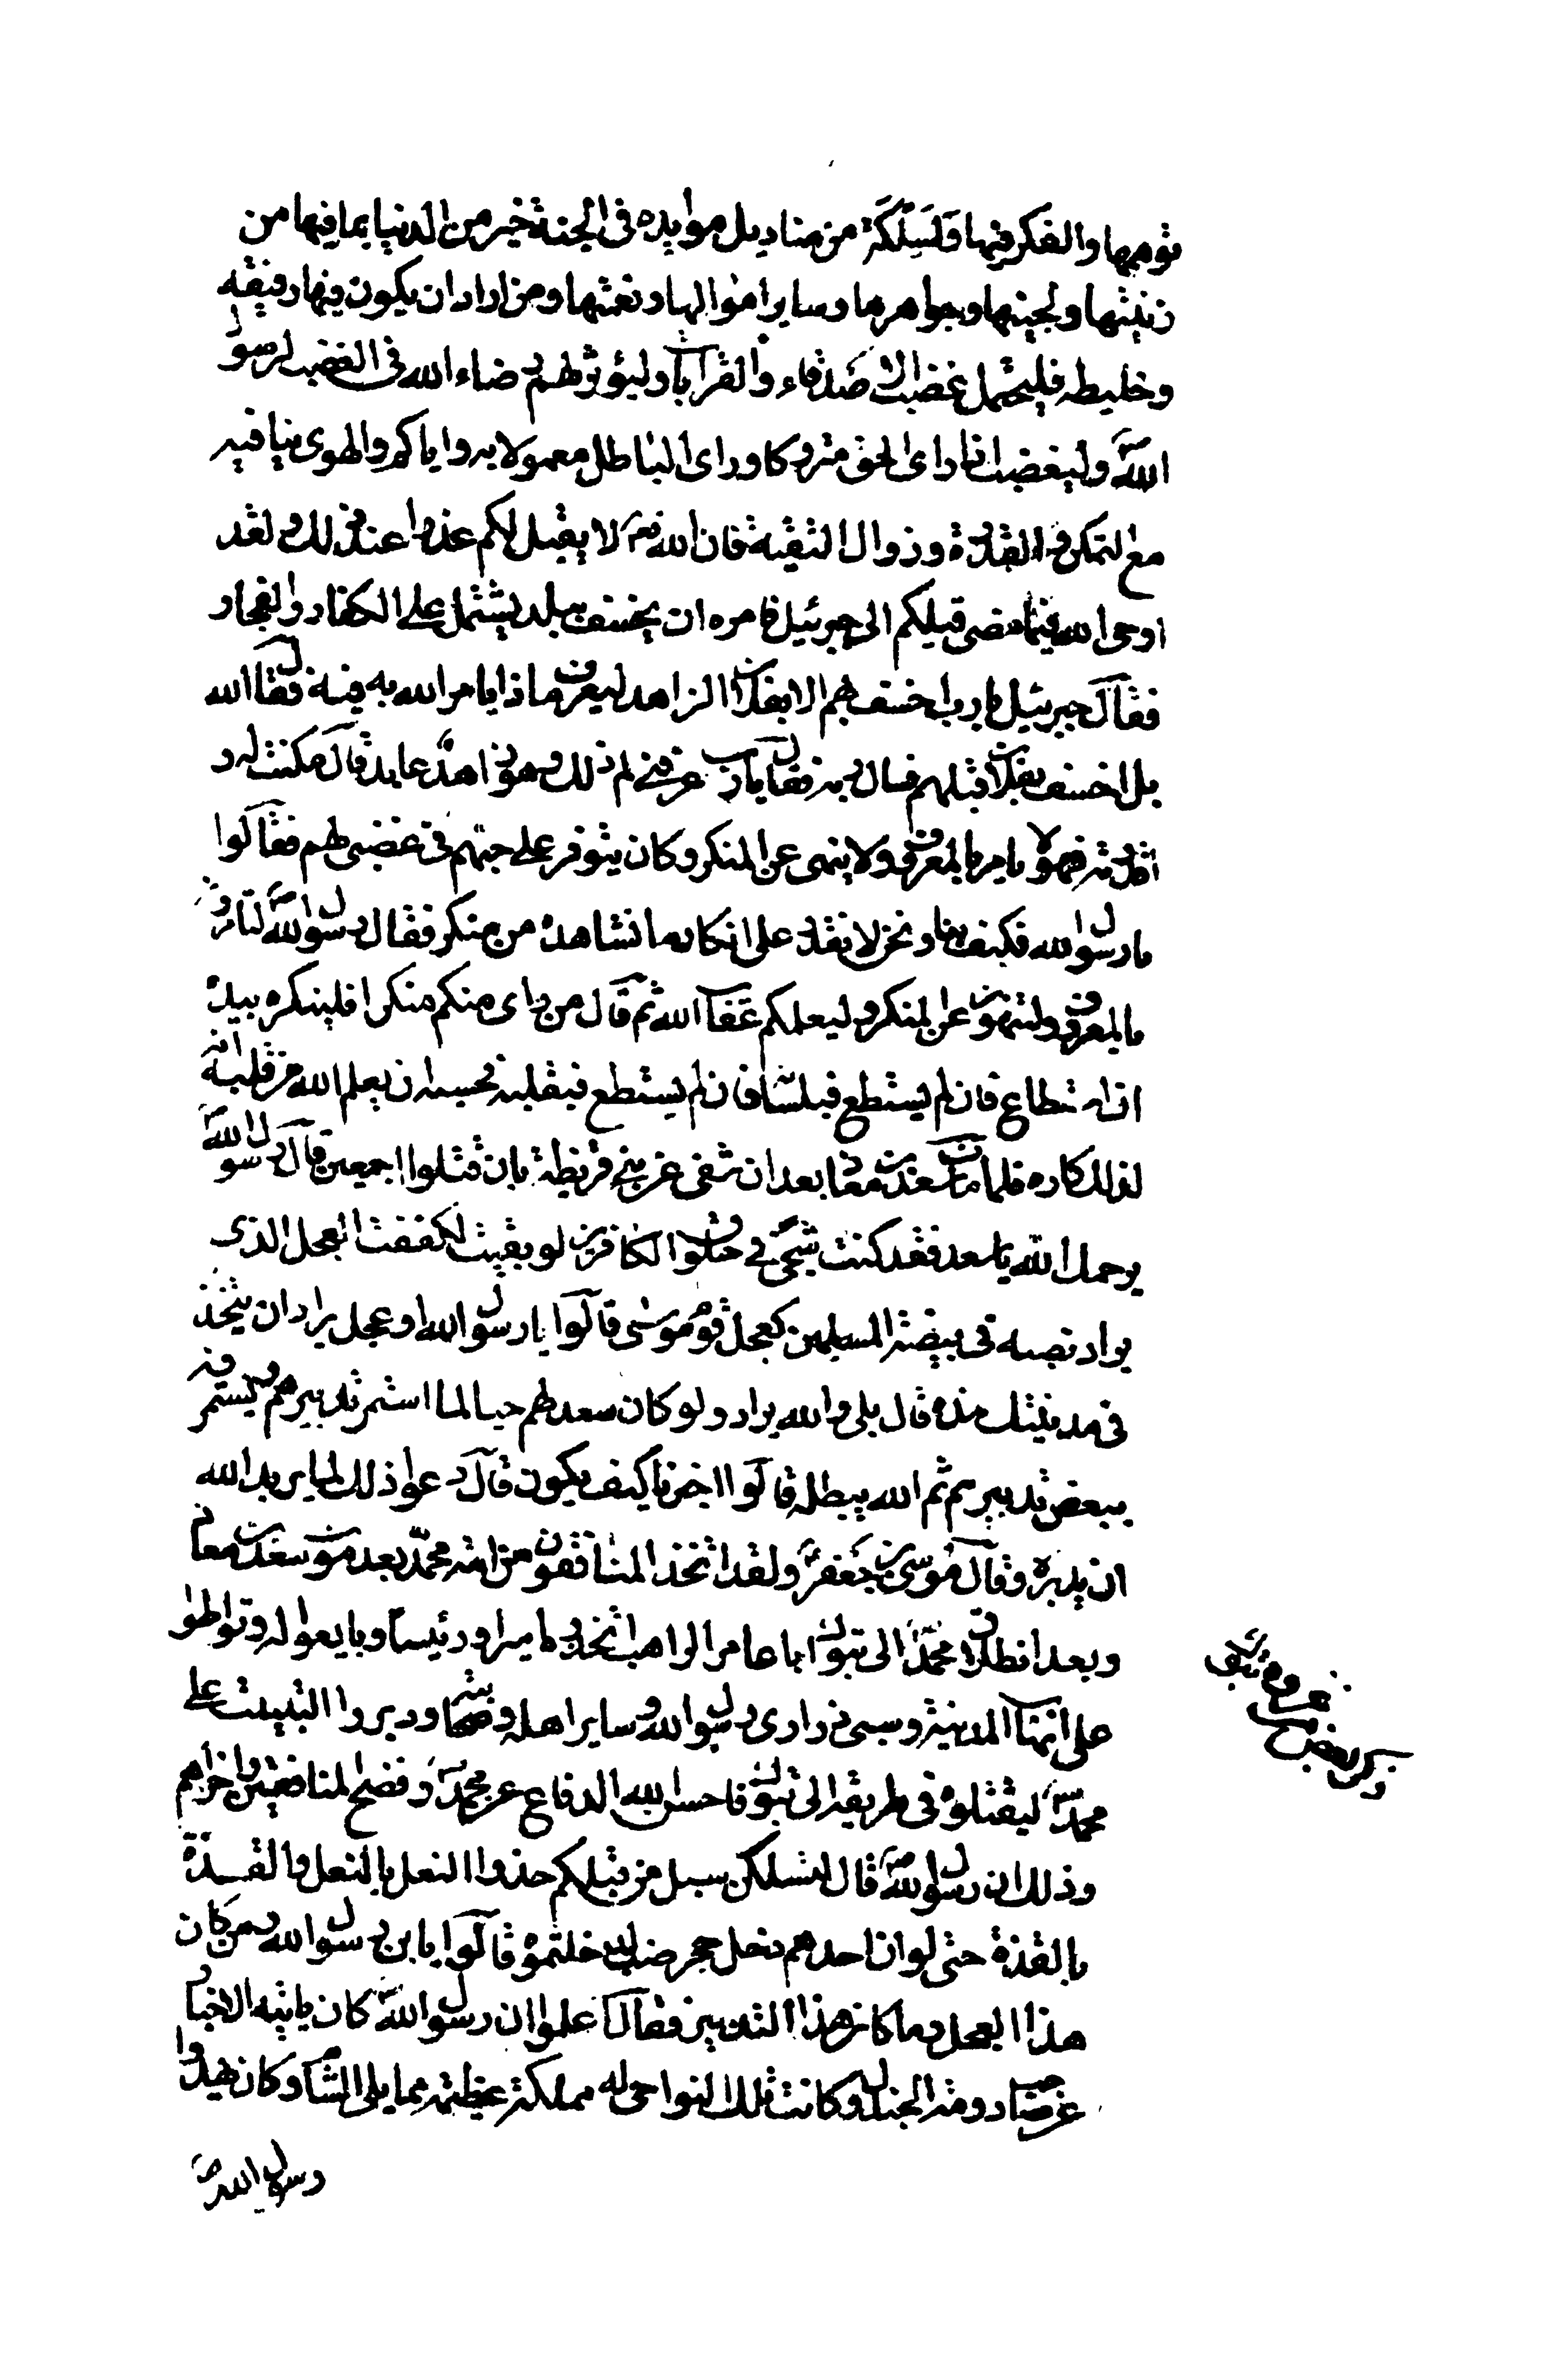 توهمها والفكر فيها ولسلكة من مناديل موايده في الجنة خير من الدنيا بما فيها من
زينتها ولجينها وجواهرها وسایر اموالها ونعمتها ومن اراد ان يكون فيها رفيقه
وخليطه فليحتمل غضب الاصدقاء والقرابات وليؤثر لهم رضاء الله في الغضب لرسول
الله ص وليغضب اذا رای الحق متروكا ورای الباطل معمولا به واياكم والهوى ينافيه
مع التمكن والقدرة وزوال التقية فان الله تع لا يقبل لكم عذرا عند ذلك ولقد
اوحى الله فيما مضى قبلكم الى جبرئيل فامره ان يخسف ببلد يشتمل على الكفار والفجار
فقال جبرئيل يا رب اخسف بهم الا بفلان الزاهد ليعرف ماذا يامر الله به فيه فقال الله
بل اخسف بفلان قبلهم فسال ربه فقال يا رب عرفني لم ذلك وهو زاهد عابد قال مكنت له و
اقدرته فهو لا يامر بالمعروف ولا ينهى عن المنكر وكان يتوفر على حبهم في غضبي لهم فقالوا
يا رسول الله فكيف بنا ونحن لا نقدر على انكار ما نشاهده من منكر فقال رسول الله ص لتامرون
بالمعروف ولتنهون عن المنكر او ليعمكم عقاب الله ثم قال من رای منكم منكرا فلينكره بيده
ان استطاع فان لم يستطع فبلسانه فان لم يستطع فبقلبه فحسبه ان يعلم الله من قلبه انه
لذلك كاره فلما مات سعد بن معاذ بعد ان شفي من بني قريظة بان قتلوا اجمعين قال رسول الله ص
يرحمك الله يا سعد فقد كنت شجى في حلوق الكافرين لو بقيت لكففت العجل الذي
يراد نصبه في بيضة المسلمين كعجل قوم موسى قالوا يا رسول الله او عجل يراد ان يتخذ
في مدينتك هذه قال بلى والله يراد ولو كان سعد لهم حيا لما استمر تدبيرهم ويستمرون
ببعض تدبيرهم ثم الله يبطله قالوا اخبرنا كيف يكون قال دعوا ذلك لما يريد الله
ان يدبره وقال موسى بن جعفر ع ولقد اتخذ المنافقون من امة محمد بعد موت سعد بن معاذ
وبعد انطلاق محمد ص الى تبوك ابا عامر الراهب اتخذوه اميرا ورئيسا وبايعوا له وتواطؤا
على انهاب المدينة وسبي ذراري رسول الله وساير اهله وصحابته ودبروا التبييت على
محمد ص ليقتلوه في طريقه الى تبوك فاحسن الله الدفاع عن محمد ص وفضح المنافقين واخزاهم
وذلك ان رسول الله ص قال لتسلكن سبل من قبلكم حذوا النعل بالنعل والقذة
بالقذة حتى لو ان احدهم دخل جحر ضب لدخلتموه قالوا يا بن رسول الله من كان
هذا العجل وما كان هذا التدبير فقال اعلموا ان رسول الله ص كان ياتيه الاخبار
عن صاحب دومة الجندل وكانت تلك النواحي له مملكة عظيمة مما يلي الشام وكان يهدد
رسول الله ص
ذكر بعض
غزوة تبوك